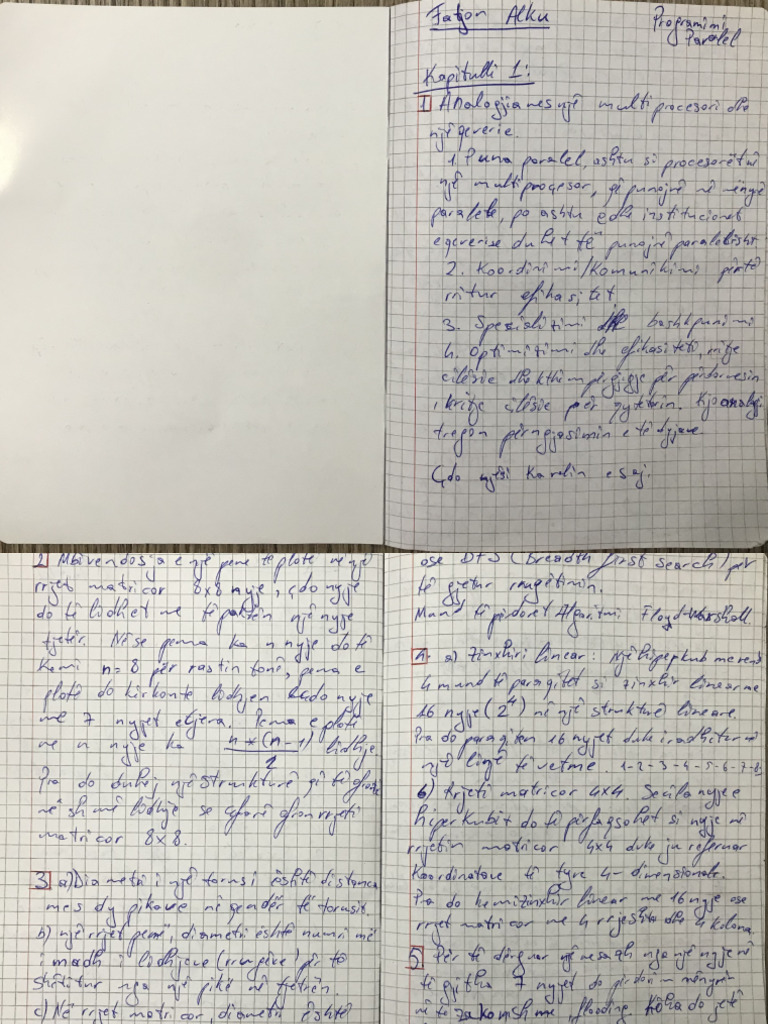 Fatjon Alku
Programimi
Paralel
Kapitulli 1:
1 Analogjia mes një multiprocesori dhe
një qeverie.
1. Puna paralel, ashtu si procesorët në
një multiprocesor, që punojnë në mënyrë
paralele, po ashtu edhe institucionet
e qeverisë duhet të punojnë paralelisht
2. Koordinimi/Komunikimi për të
rritur efikasitet
3. Specializimi dhe bashkpunimi
4. Optimizimi dhe efikasiteti, rritje
cilësie dhe kthim përgjigje për përdoruesin
, rritje cilësie për qytetarin. Kjo analogji
tregon përngjasimin e të dyjave.
Çdo njësi ka rolin e saj.
2 Mbivendosja e një peme të plotë në një
rrjet matricor 8x8 nyje, çdo nyje
do të lidhet me të paktën një nyje
tjetër. Nëse pema ka n nyje do të
kemi n=8 për rastin tonë, pema e
plotë do kërkonte lidhjen e çdo nyje
me 7 nyjet e tjera. Pema e plotë
me n nyje ka n*(n-1)/2 lidhje
Pra do duhej një strukturë që të ofrojë
më shumë lidhje se çfarë ofron rrjeti
matricor 8x8.
3 a) Diametri i një torusi është distanca
mes dy pikave në qendër të torusit.
b) një rrjet peme, diametri është numri më
i madh i lidhjeve (rrugëve) për të
shëtitur nga një pikë në tjetrën.
c) Në rrjet matricor, diametri është
ose DFS (Breadth first search) për
të gjetur rrugëtimin.
Mund të përdoret Algoritmi Floyd-Warshall.
4. a) Zinxhiri linear: Një hiperkub me rend
4 mund të paraqitet si zinxhir linear me
16 nyje (2^4) në një strukturë lineare.
Pra do paraqiten 16 nyjet duke i radhitur në
një linjë të vetme. 1-2-3-4-5-6-7-8
b) Rrjeti matricor 4x4. Secila nyje e
hiperkubit do të përfaqsohet si nyje në
rrjetin matricor 4x4 duke ju referuar
koordinatave të tyre 4-dimensionale.
Pra do kemi zinxhir linear me 16 nyje ose
rrjet matricor me 4 rrjeshta dhe 4 kolona.
5 Për të dërguar një mesazh nga një nyje në
të gjitha 7 nyjet do përdorim mënyrën
më të zakonshme, flooding. Koha do jetë